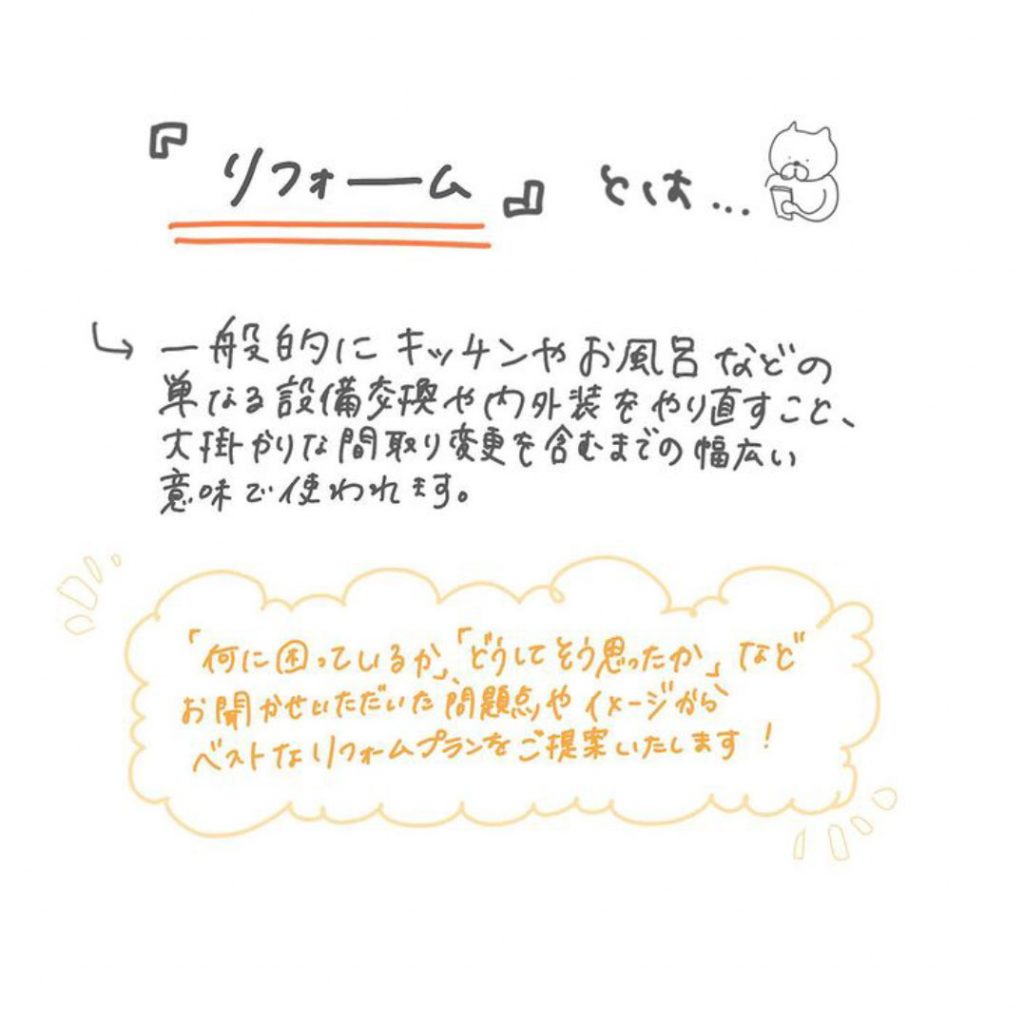 『リフォーム』とは...
一般的にキッチンやお風呂などの
単なる設備交換や内外装をやり直すこと、
大掛かりな間取り変更を含むまでの幅広い
意味で使われます。
「何に困っているか」、「どうしてそう思ったか」など
お聞かせいただいた問題点やイメージから
ベストなリフォームプランをご提案いたします！